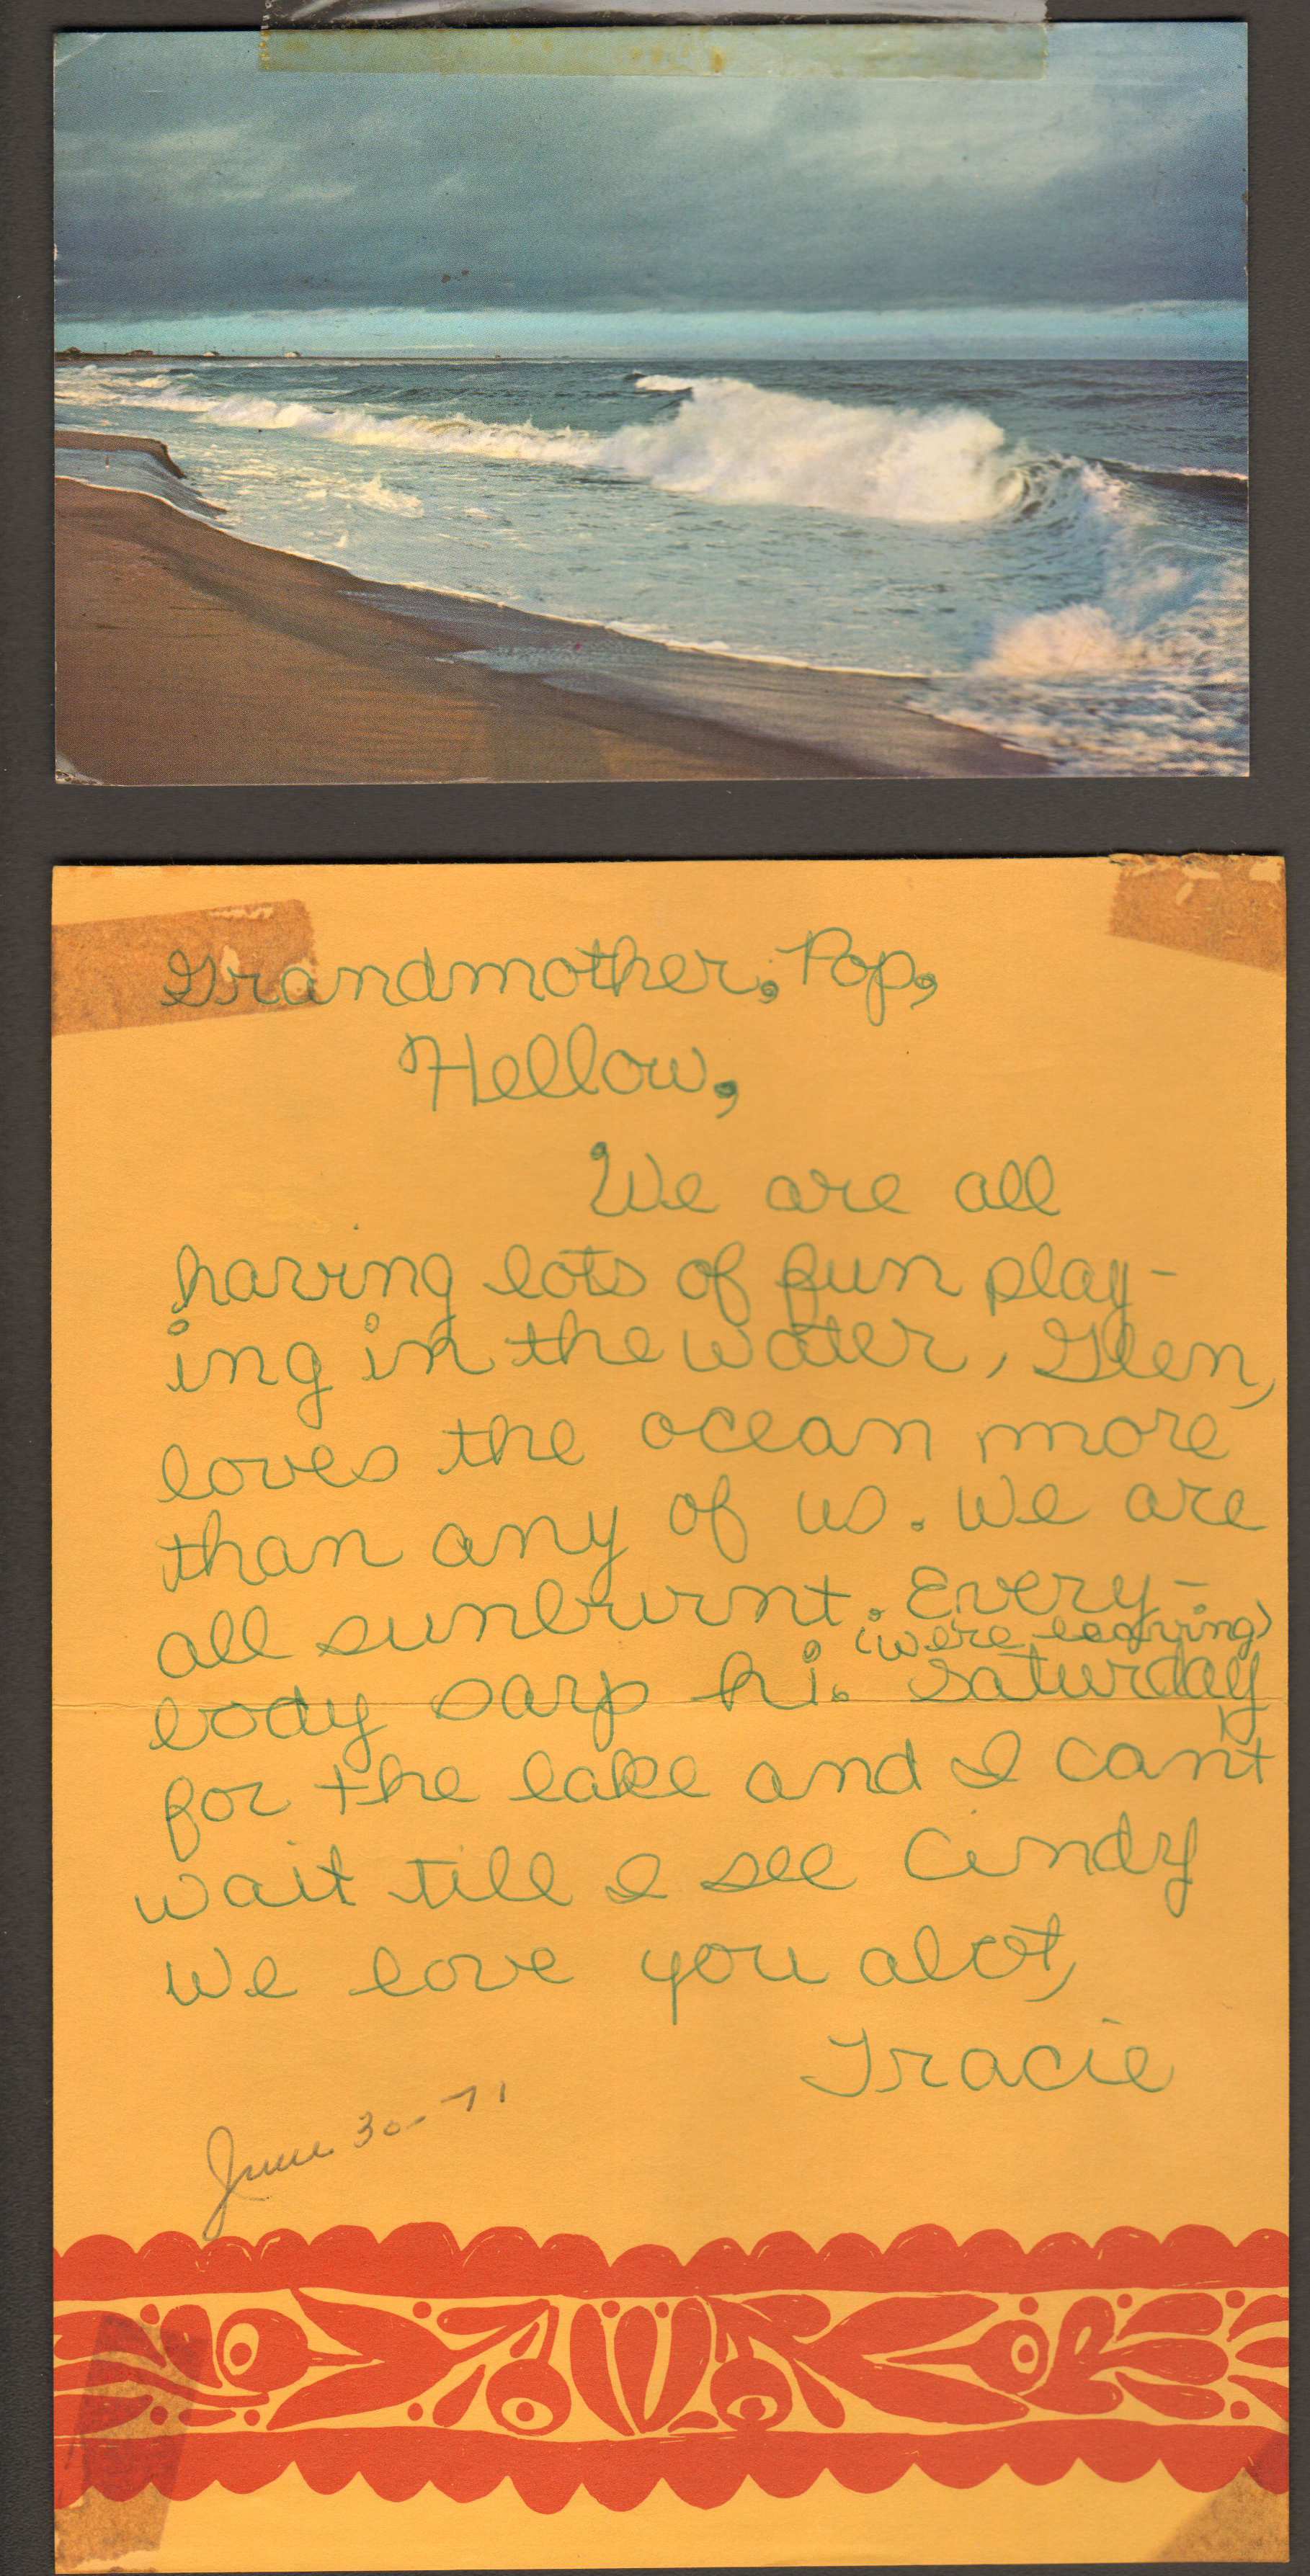 Grandmother, Pop,
Hellow,
We are all
having lots of fun play-
ing in the water, Glen,
loves the ocean more
than any of us. We are
all sunburnt. Every-
(were leaving)
body says hi. Saturday
for the lake and I can't
wait till I see Cindy
We love you alot,
Tracie
June 30-71